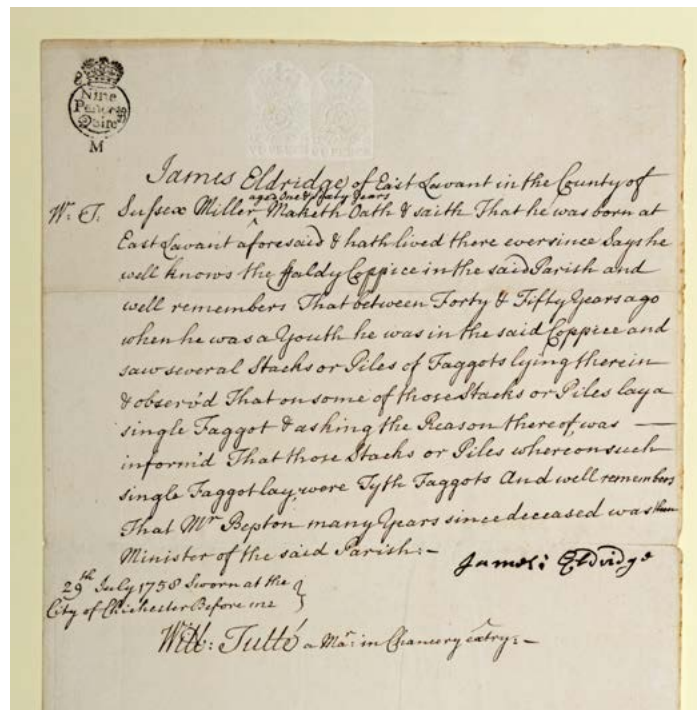 Nine
Pence ⅌
Quire
M
James Eldridge of East Lavant in the County of
aged One & Sixty Years
Wm. T. Sussex Miller ^ Maketh Oath & saith That he was born at
East Lavant aforesaid & hath lived there ever since Says he
well knows the ffaldy Coppice in the said Parish and
well remembers That between Forty & Fifty Years ago
when he was a Youth he was in the said Coppice and
saw several Stacks or Piles of Faggots lying therein
& observ'd That on some of those Stacks or Piles lay a
single Faggot & asking the Reason thereof, was —
inform'd That those Stacks or Piles whereon such
single Faggot lay, were Tyth Faggots And well remembers
That Mr. Bepton many Years since deceased was then
Minister of the said Parish: -
James: Eldridge
29th July 1758 Sworn at the
City of Chichester Before me
Will: Tutté a Mar: in Chancery extry: -